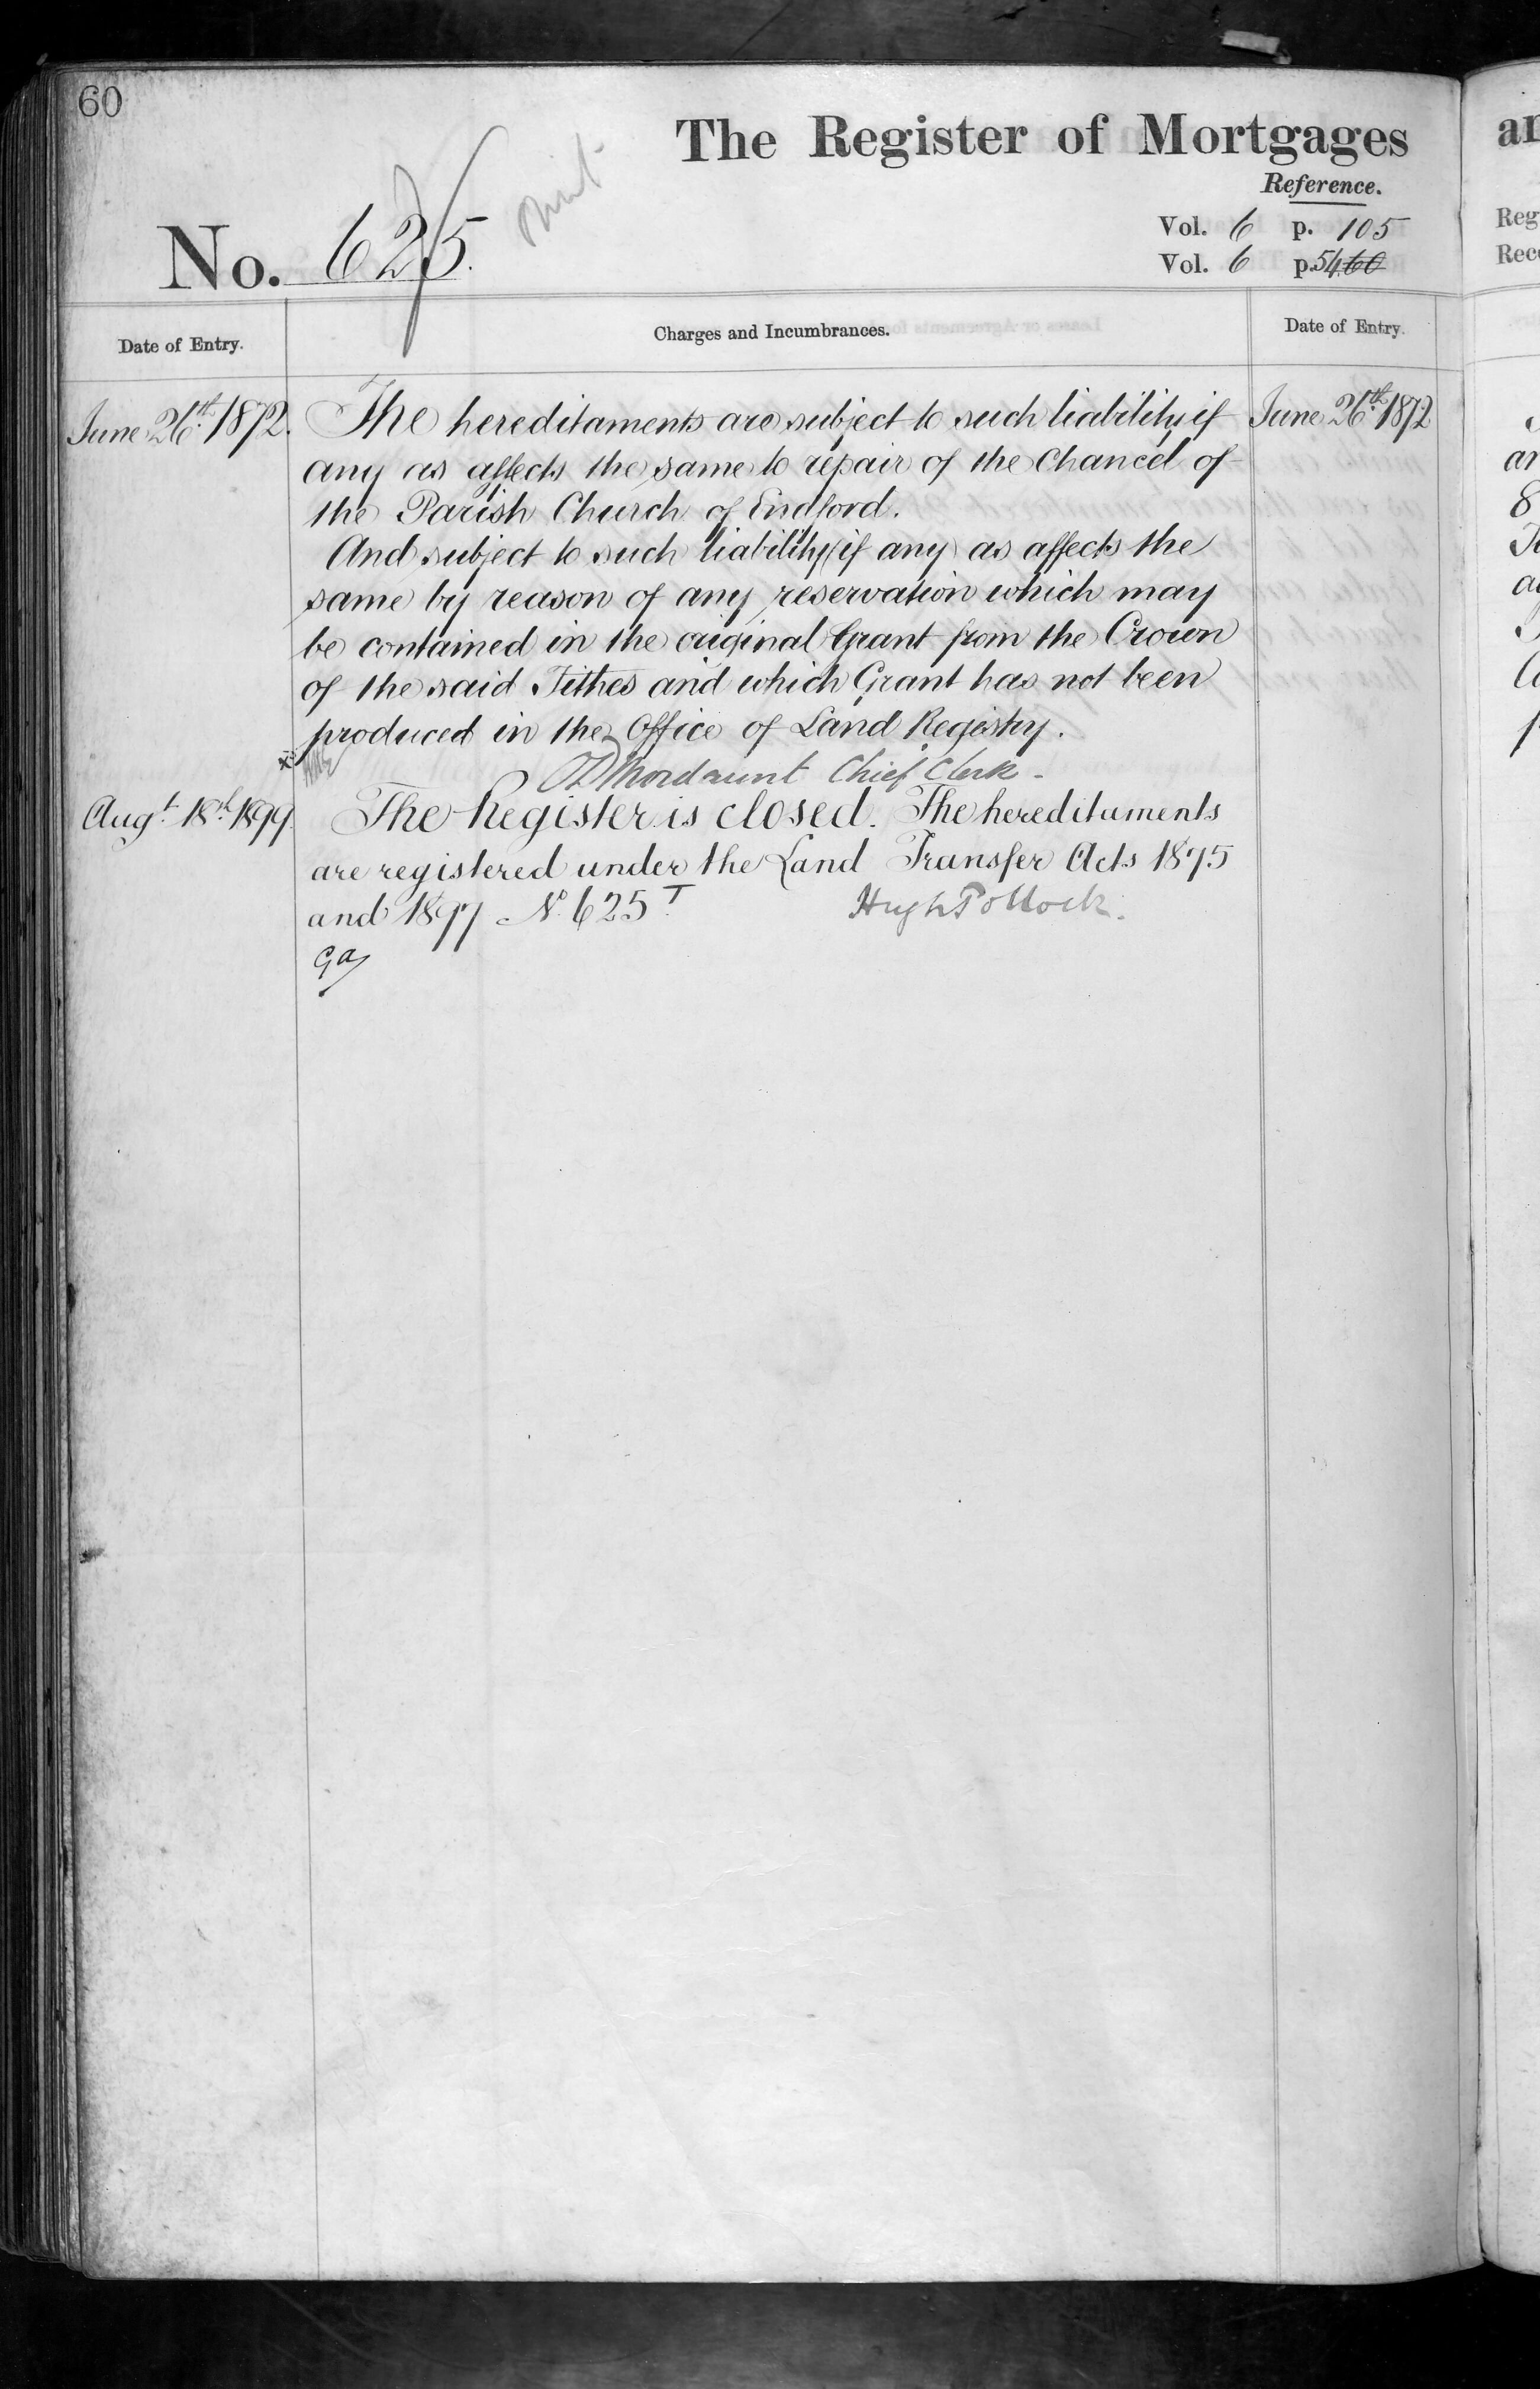 60
The Register of Mortgages
Reference.
Vol. 6 p. 105
No. 625.
Vol. 6 p. 54 60
Date of Entry. Charges and Incumbrances. Date of Entry.
June 26th. 1872. The hereditaments are subject to such liability if June 26th. 1872
any as affects the same to repair of the Chancel of
the Parish Church of Endford.
And subject to such liability (if any) as affects the
same by reason of any reservation which may
be contained in the original Grant from the Crown
of the said Tithes and which Grant has not been
produced in the Office of Land Registry.
Mordaunt Chief Clerk.
Augt. 18th. 1899. The Register is closed. The hereditaments
are registered under the Land Transfer Acts 1875
and 1897 No. 625T. Hugh Pollock.
Ga
ar
Reg
Rec